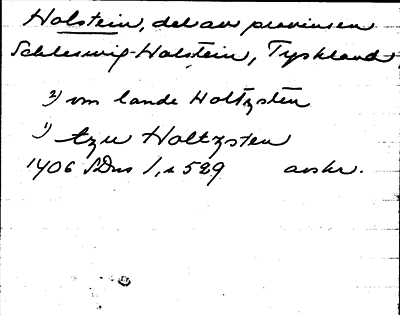 Holstein, del av provinsen
Schleswig-Holstein, Tyskland
2) vm lande Holtzsten
1) tzu Holtzsten
1406 SDns 1, s 529 avskr.